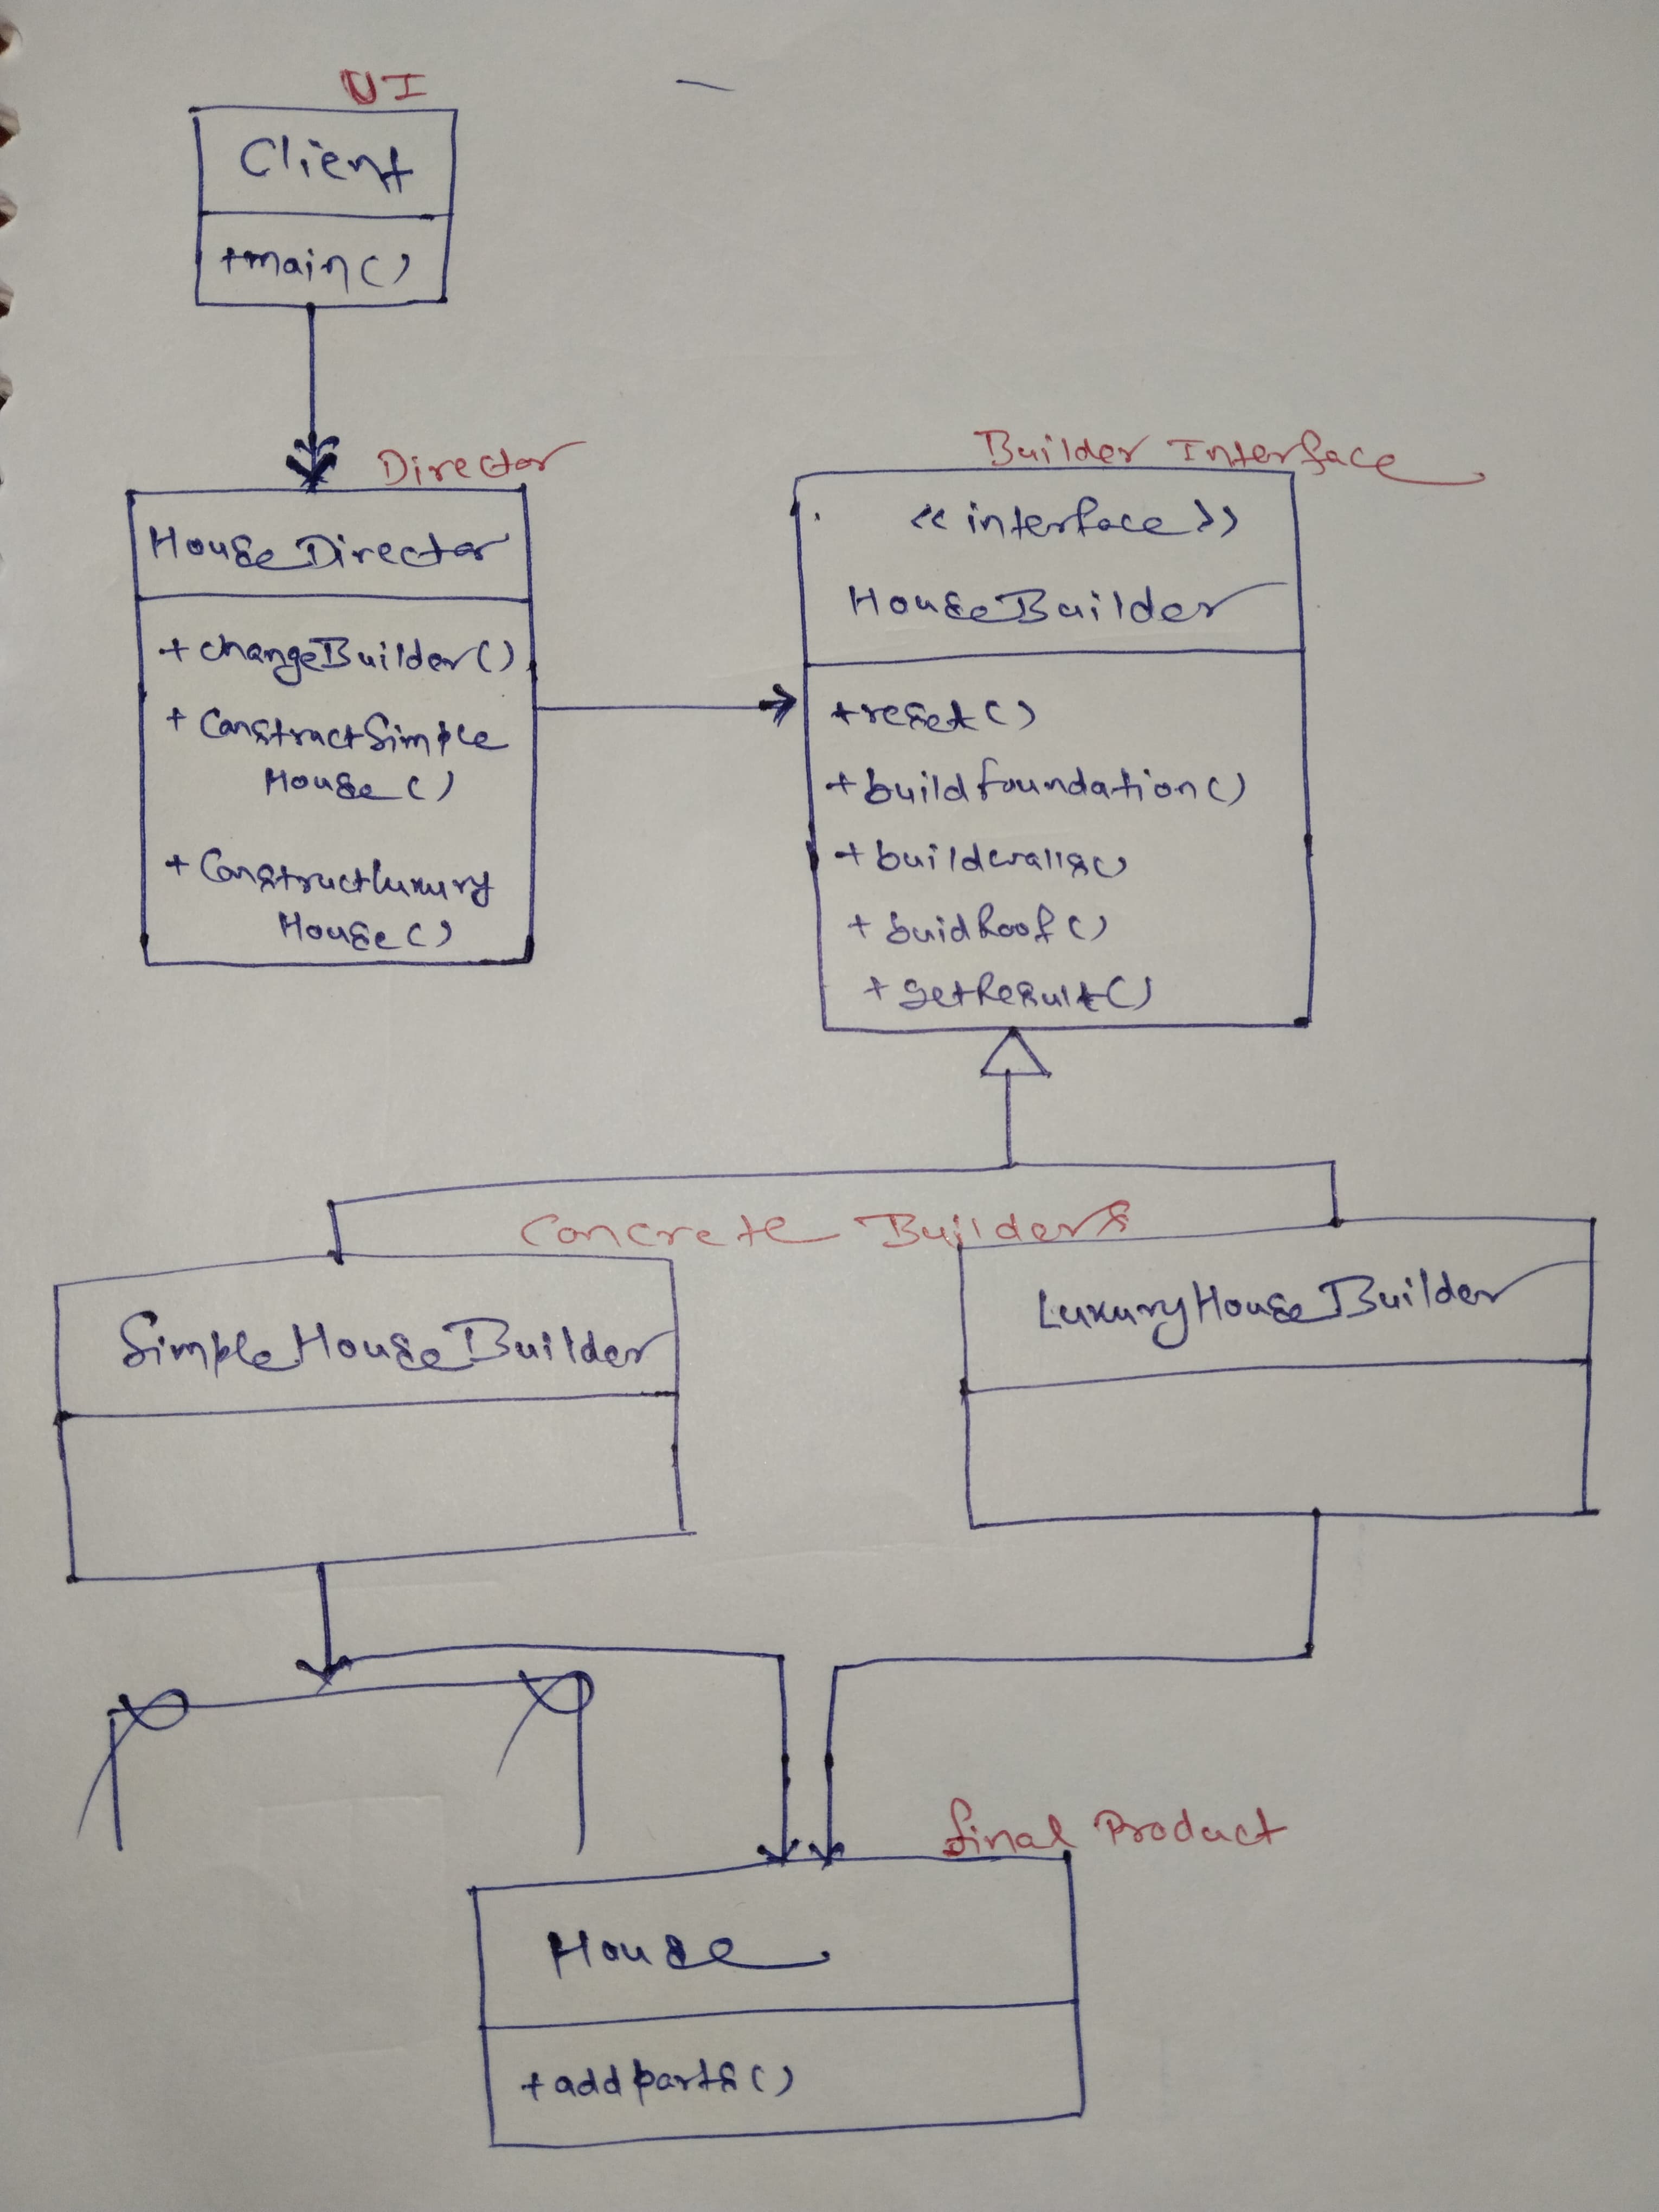 UI
Client
+main()
Director
HouseDirector
+changeBuilder()
+ ConstructSimple
House()
+ ConstructLuxury
House()
Builder Interface
<<interface>>
HouseBuilder
+reset()
+buildfoundation()
+buildwalls()
+buidRoof()
+getResult()
Concrete Builders
SimpleHouseBuilder
LuxuryHouseBuilder
final Product
House
+addparts()